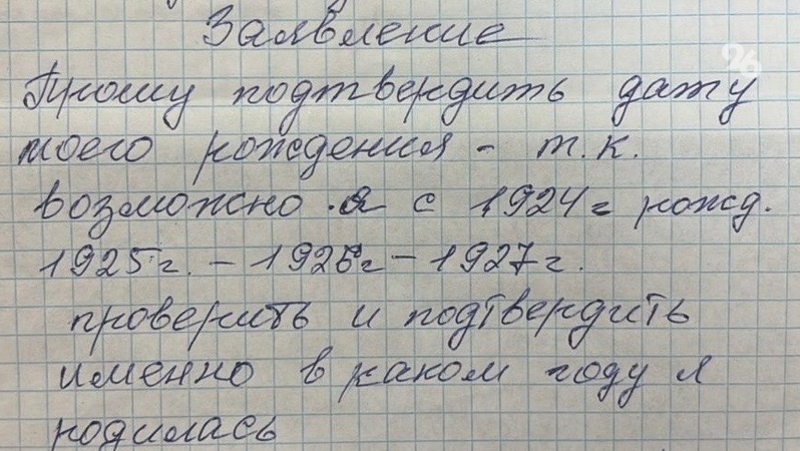 Заявление
26
Прошу подтвердить дату
моего рождения - т.к.
возможно я с 1924г рожд.
1925г. - 1926г - 1927г.
проверить и подтвердить
именно в каком году я
родилась